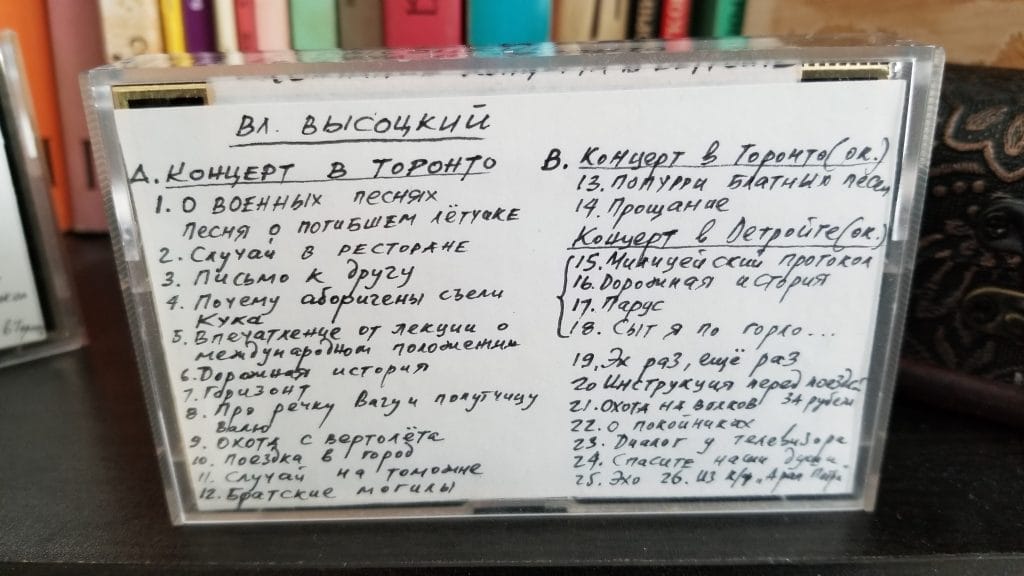 Вл. ВЫСОЦКИЙ
А. КОНЦЕРТ В ТОРОНТО
1. О ВОЕННЫХ ПЕСНЯХ
ПЕСНЯ О ПОГИБШЕМ ЛЁТЧИКЕ
2. Случай в РЕСТОРАНЕ
3. Письмо к другу
4. Почему аборигены съели
Кука
5. Впечатление от лекции о
международном положении
6. Дорожная история
7. Горизонт
8. Про речку Вачу и попутчицу
Валю
9. Охота с вертолёта
10. Поездка в город
11. Случай на таможне
12. Братские могилы
В. Концерт в Торонто (ок.)
13. ПОПУРРИ БЛАТНЫХ ПЕСЕН
14. Прощание
Концерт в Детройте (ок.)
15. Милицейский протокол
16. Дорожная история
17. Парус
18. Сыт я по горло...
19. Эх раз, ещё раз
20 Инструкция перед поездкой
21. Охота на волков за рубеж
22. О покойниках
23. Диалог у телевизора
24. Спасите наши души
25. Эхо 26. Из к/ф „Арап